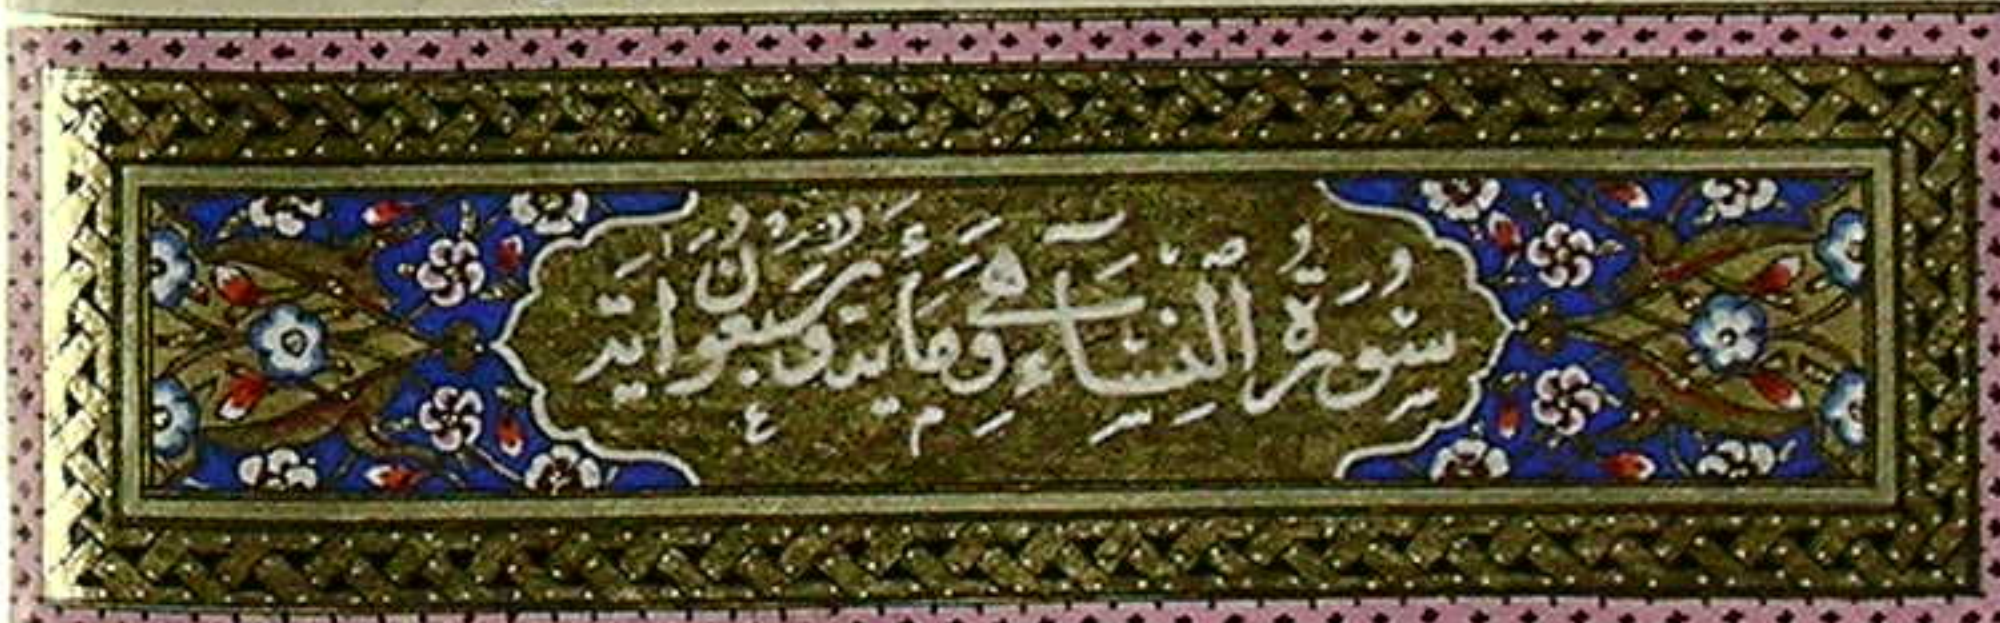 سُورَةُ النِّسَآءِ وَهِيَ مِأَيَةٌ وَسَبْعُونَ اٰيَة